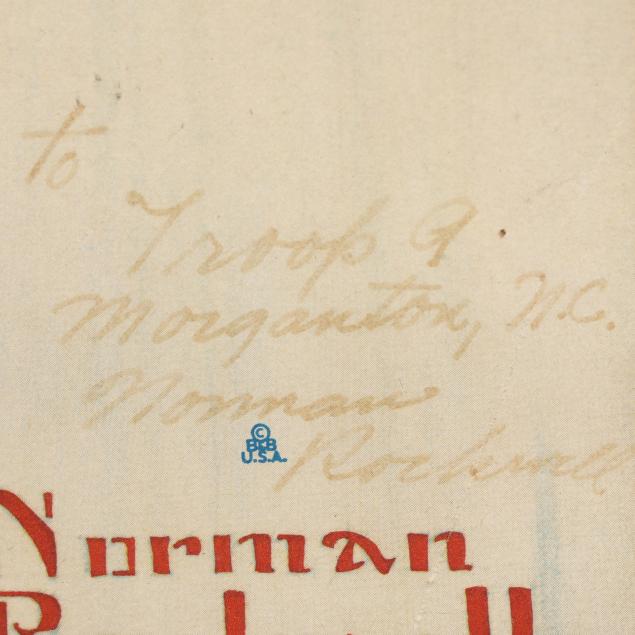 to
Troop 9
Morganton, N.C.
Norman
Rockwell
©
B&B
U.S.A.
Norman